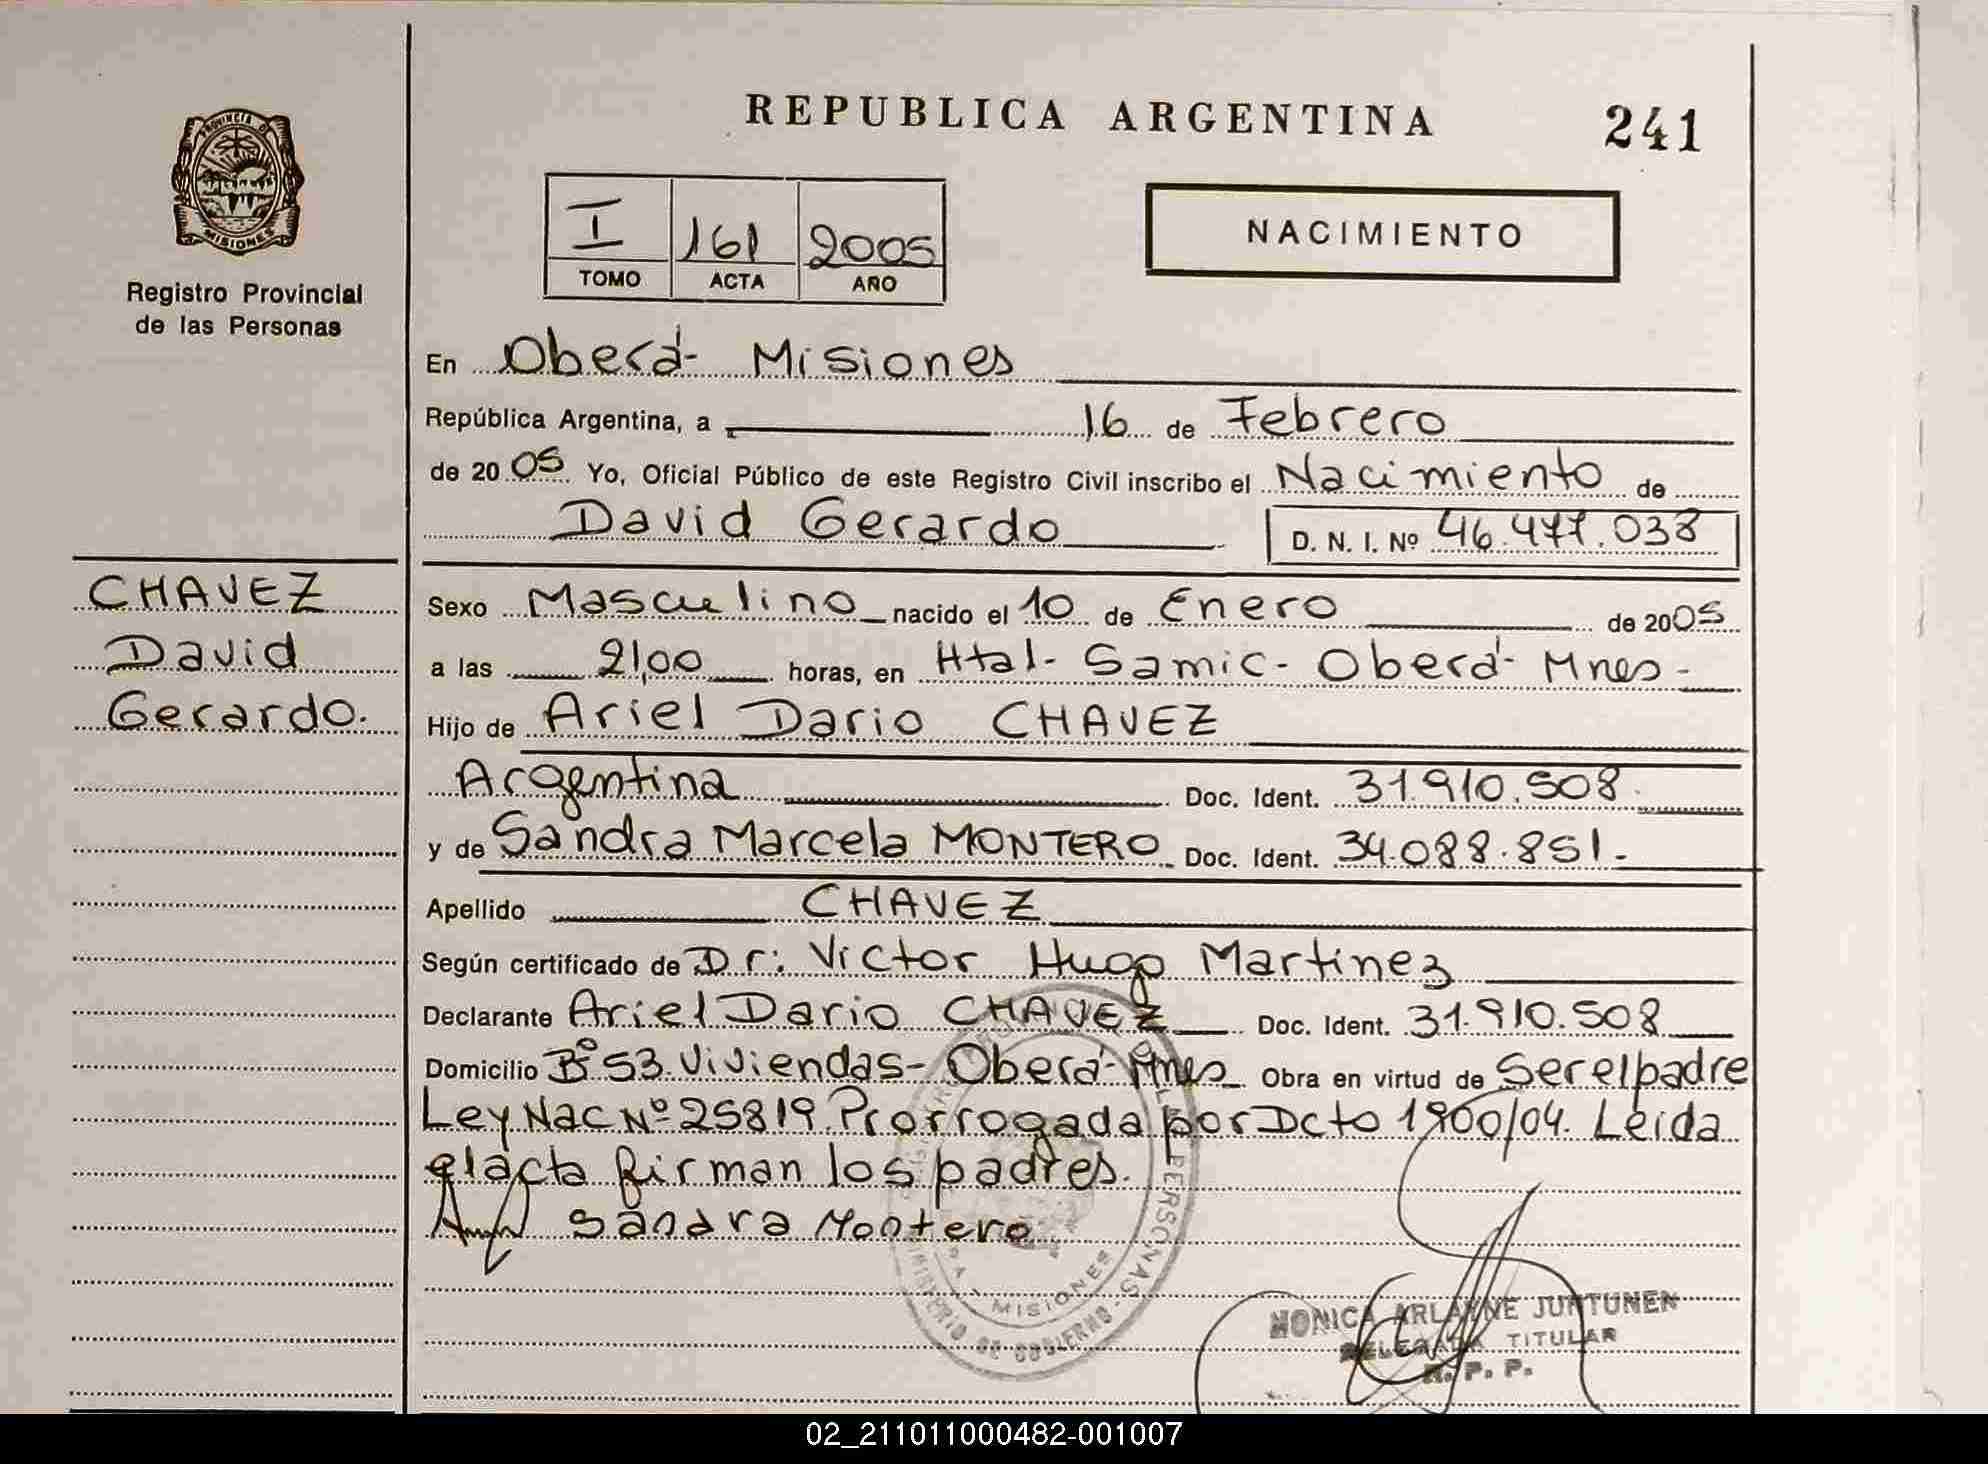 REPUBLICA ARGENTINA
241
PROVINCIA DE
MISIONES
Registro Provincial
de las Personas
I 161 2005
TOMO ACTA AÑO
NACIMIENTO
En Oberá- Misiones
República Argentina, a 16 de Febrero
de 2005 Yo, Oficial Público de este Registro Civil inscribo el Nacimiento de
David Gerardo D. N. I. Nº 46.477.038
CHAVEZ
David
Gerardo.
Sexo Masculino nacido el 10 de Enero de 2005
a las 21,00 horas, en Htal- Samic- Oberá- Mnes-
Hijo de Ariel Dario CHAVEZ
Argentina Doc. Ident. 31.910.508.
y de Sandra Marcela MONTERO Doc. Ident. 34.088.851.-
Apellido CHAVEZ
Según certificado de Dr: Victor Hugo Martinez
Declarante Ariel Dario CHAVEZ Doc. Ident. 31.910.508
Domicilio Bº 53 Viviendas- Oberá- Mnes Obra en virtud de Ser el padre
Ley Nac Nº 25819 Prorrogada por Dcto 1900/04. Leida
el acta firman los padres.
Sandra Montero
PERSONAS
MISIONES
MINISTERIO DE GOBIERNO
MONICA ARLAYNE JUNTUNEN
DELEGADA TITULAR
R. P. P.
02_211011000482-001007